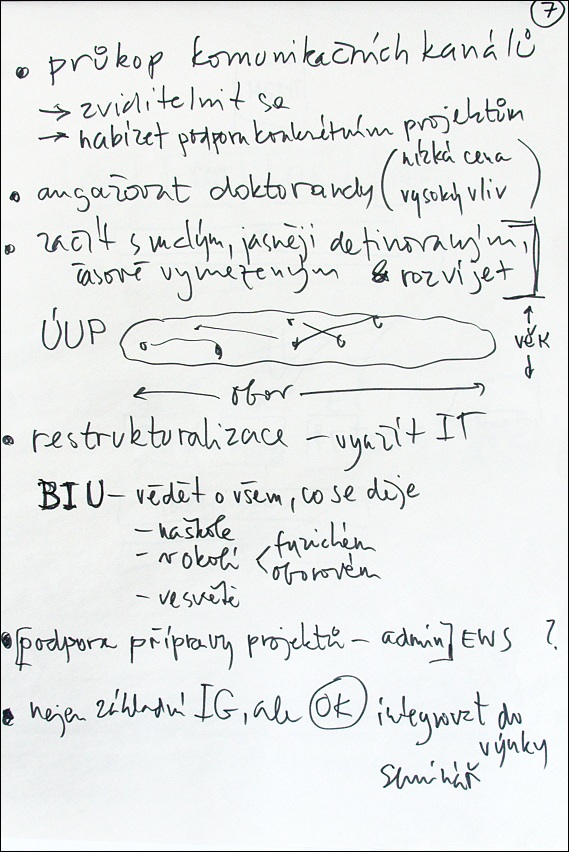 7
• průkop komunikačních kanálů
→ zviditelnit se
→ nabízet podporu konkrétním projektům
• angažovat doktorandy (nízká cena
vysoký vliv)
• začít s malým, jasněji definovaným,
časově vymezeným & rozvíjet
ÚUP
↑
věk
↓
← obor →
• restrukturalizace – využít IT
BIU – vědět o všem, co se děje
– na škole
– v okolí < fyzickém
oborovém
– ve světě
• [podpora přípravy projektů – admin] EWS ?
• nejen základní IG, ale OK integrovat do
výuky
seminář